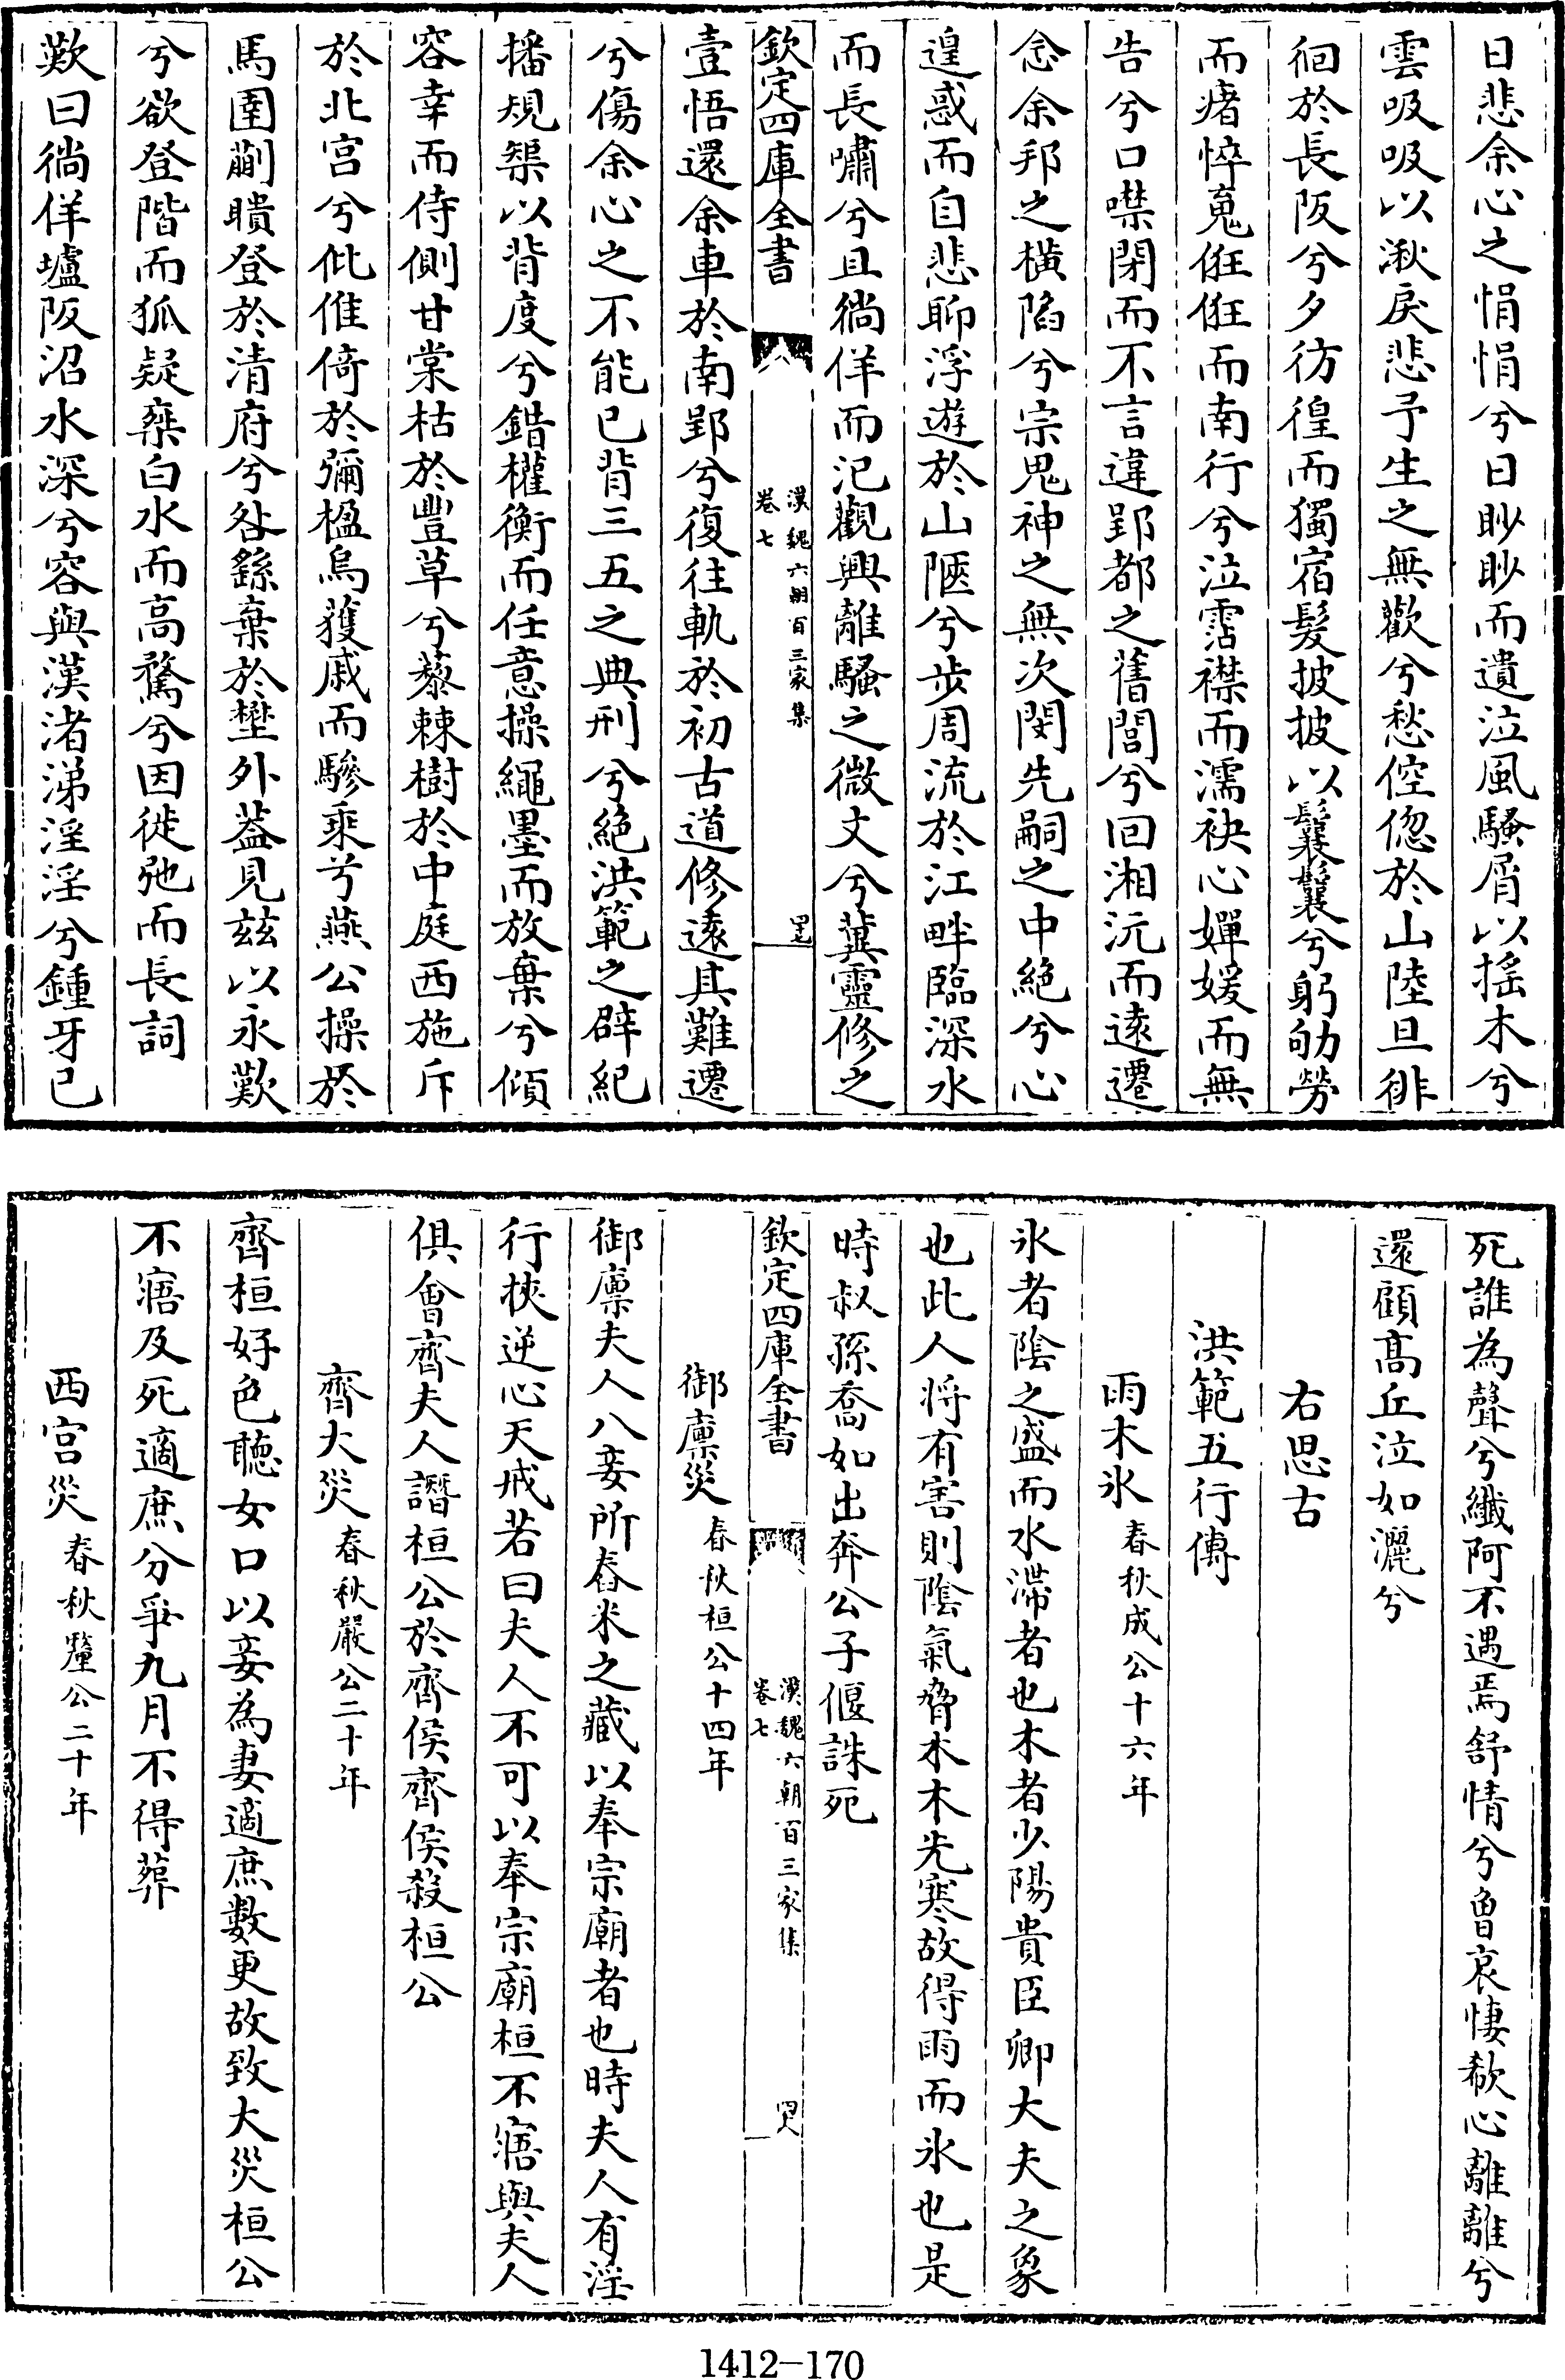 日悲余心之悁悁兮目眇眇而遺泣風騷屑以揺木兮
雲吸吸以湫戾悲予生之無歡兮愁倥傯於山陸旦徘
徊於長阪兮夕彷徨而獨宿髮披披以鬤鬤兮躬劬勞
而瘏悴䰟俇俇而南行兮泣霑襟而濡袂心嬋媛而無
告兮口噤閉而不言違郢都之舊閭兮回湘沅而逺遷
念余邦之横陷兮宗鬼神之無次閔先嗣之中絶兮心
遑惑而自悲聊浮遊於山陿兮步周流於江畔臨深水
而長嘯兮且徜佯而氾觀興離騷之微文兮冀靈修之
欽定四庫全書
漢魏六朝百三家集
卷七
罕七
壹悟還余車於南郢兮復往軌於初古道修逺其難遷
兮傷余心之不能已背三五之典刑兮絶洪範之辟紀
播規榘以背度兮錯權衡而任意操繩墨而放棄兮傾
容幸而侍側甘棠枯於豐草兮藜棘樹於中庭西施斥
於北宫兮仳倠倚於彌楹烏獲戚而驂乘兮燕公操於
馬圉蒯聵登於清府兮咎繇棄於壄外葢見兹以永歎
兮欲登階而狐疑椉白水而高騖兮因徙弛而長詞
歎曰徜佯壚阪沼水深兮容與漢渚涕淫淫兮鍾牙已
死誰為聲兮纎阿不遇焉舒情兮曾哀悽欷心離離兮
還顧髙丘泣如灑兮
右思古
洪範五行傳
雨木氷 春秋成公十六年
氷者陰之盛而水滯者也木者少陽貴臣卿大夫之象
也此人将有害則隂氣脅木木先寒故得雨而氷也是
時叔孫喬如出奔公子偃誅死
欽定四庫全書
漢魏六朝百三家集
卷七
罕八
御廪災 春秋桓公十四年
御廪夫人八妾所舂米之藏以奉宗廟者也時夫人有淫
行挾逆心天戒若曰夫人不可以奉宗廟桓不寤與夫人
俱會齊夫人譖桓公於齊侯齊侯殺桓公
齊大災 春秋嚴公二十年
齊桓好色聽女口以妾為妻適庶數更故致大災桓公
不寤及死適庶分爭九月不得葬
西宫災 春秋釐公二十年
1412—170